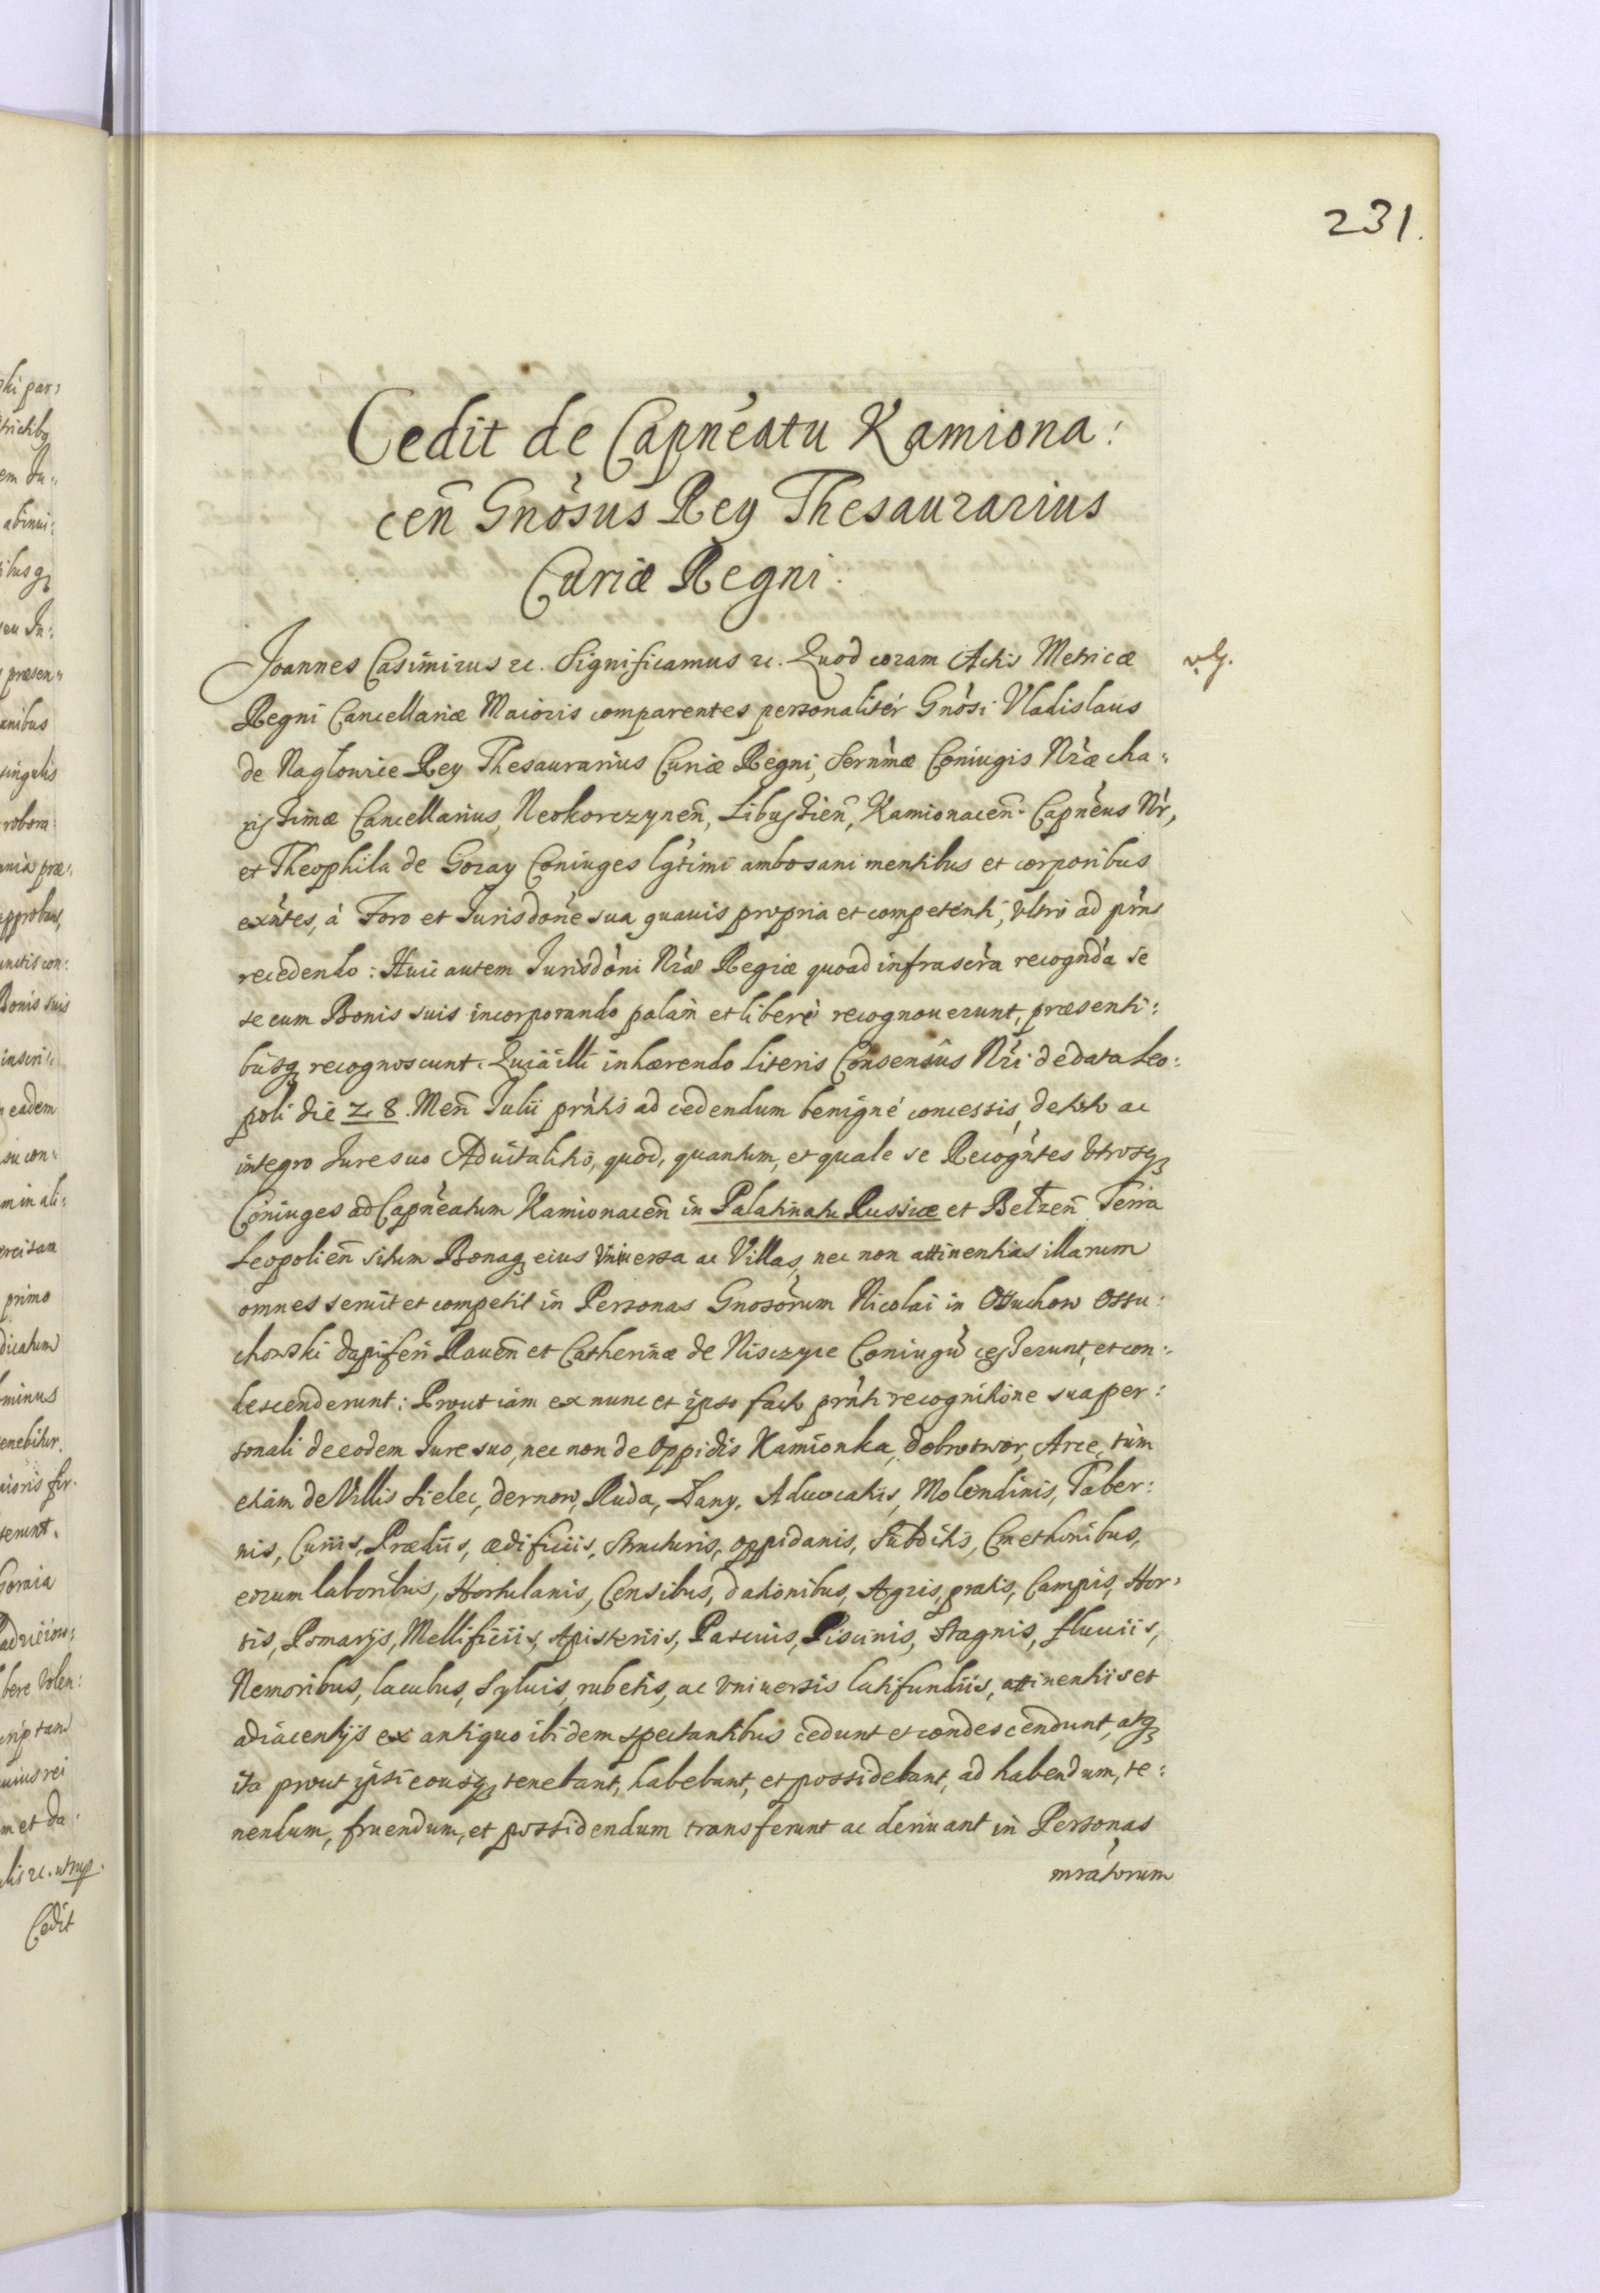 231.
Cedit de Capnéatu Kamiona:
cen̄ Gnósus Rey Thesaurarius
Curiæ Regni.
Joannes Casimirus zc. Significamus zc. Quod coram Actis Metricæ
Regni Cancellariæ Maioris comparentes personalitér Gnósi Vladislaus
de Naglowice Rey Thesaurarius Curiæ Regni, Sernmæ Coniugis Nræ cha-
rissimæ Cancellarius, Neokorczynen̄, Libusien̄, Kamionacen̄. Capnéus Nr,
et Theophila de Goray Coniuges lgtimi ambo sani mentibus et corporibus
exntes, á Foro et Jurisdone sua quauis propria et competenti, vltro ad prns
recedendo: Huic autem Jurisdóni Nræ Regiæ quoad infrascra recognda se
se cum Bonis suis incorporando palam et liberé recognouerunt, præsenti:
busq recognoscunt. Quia illi inhærendo literis Consensûs Nri de data Leo:
poli die Z8. Men̄ Julii prntis ad cedendum benigné concessis, de toto ac
integro Jure suo Aduitalitio, quod, quantum, et quale se Recogntes vtrosq
Coniuges ad Capnéatum Kamionacen̄ in Palatinatu Russiæ et Belzen̄ Terra
Leopolien̄ situm Bonaq eius vniuersa ac Villas, nec non attinentias illarum
omnes seruit et competit in Personas Gnosórum Nicolai in Ossuchow Ossu:
chowski dapiferi Rauen̄ et Catherinæ de Nisczyce Coniugū cesserunt, et con:
descenderunt: Prout iam ex nunc et ipso facto prnti recognitione sua per:
sonali de eodem Jure suo, nec non de Oppidis Kamionka, dobrotwor, Arce, tùm
etiam de Villis Sielec, dernow, Ruda, Łany, Aduocatiis, Molendinis, Taber:
nis, Curiis, Prædiis, ædificiis, Structuris, oppidanis, Subditis, Cmethonibus,
eorum laboribus, Hortulanis, Censibus, dationibus, Agris, pratis, Campis, Hor:
tis, Pomarijs, Mellificiis, Apisteriis, Pascuis, Piscinis, Stagnis, fluuiis,
Nemoribus, lacubus, Syluis, rubetis, ac vniuersis latifundiis, attinentiis et
adiacentijs ex antiquo ibidem spectantibus cedunt et condescendunt, atq
ita prout ipsi eousq tenebant, habebant, et possidebant, ad habendum, te:
nendum, fruendum, et possidendum transferunt ac deriuant in Personas
mratorum